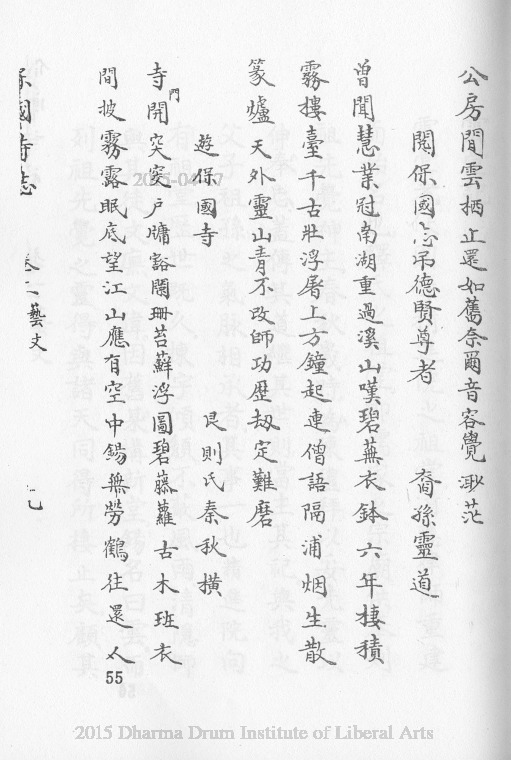 公房間雲栖止還如舊奈爾音容覺渺茫
閱保國志弔德賢尊者 裔孫靈道
曾聞慧業冠南湖重過溪山嘆碧蕪衣鉢六年棲積
霧樓臺千古壯浮屠上方鐘起連僧語隔浦烟生散
篆爐天外靈山青不改師功歷劫定難磨
遊保國寺 艮則氏秦秋橫
寺門開突突戶牗豁闌珊苔蘚浮圖碧藤蘿古木班衣
間披霧露眠底望江山應有空中錫無勞鶴往還
保國寺志 卷二藝文
55
2015 Dharma Drum Institute of Liberal Arts